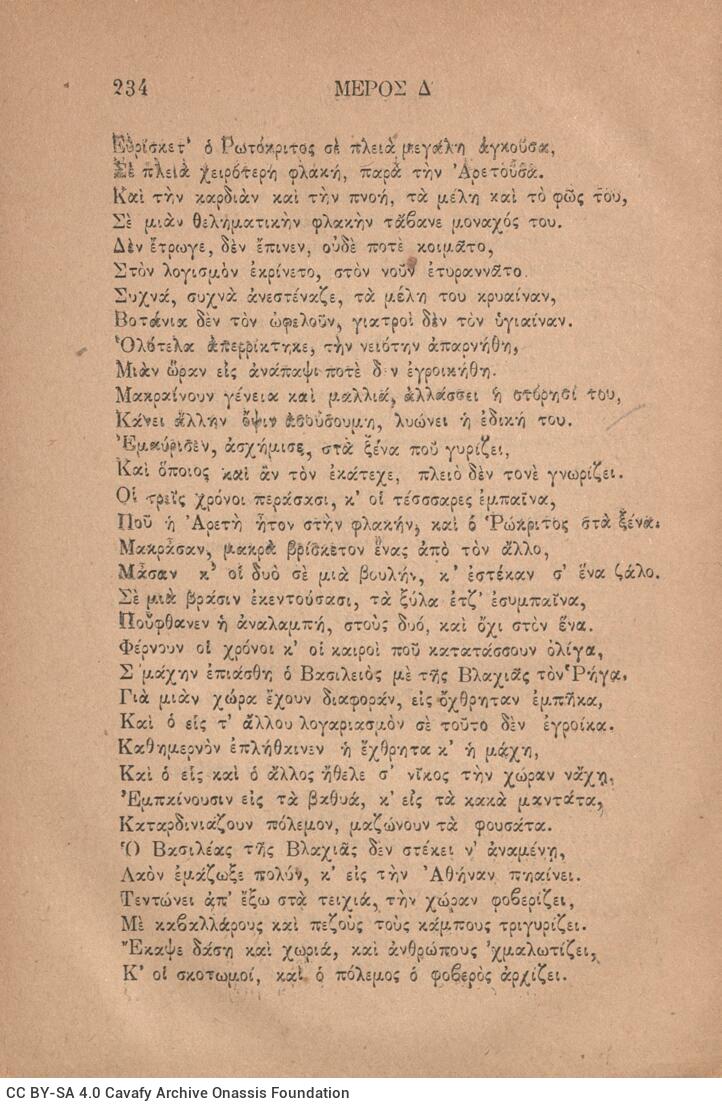 234 ΜΕΡΟΣ Δ΄
Εὑρίσκετ' ὁ Ρωτόκριτος σὲ πλειὰ μεγάλη ἀγκοῦσα,
Σὲ πλειὰ χειρότερη φλακὴ, παρὰ τὴν Ἀρετοῦσα.
Καὶ τὴν καρδιὰν καὶ τὴν πνοὴ, τὰ μέλη καὶ τὸ φῶς του,
Σὲ μιὰν θεληματικὴν φλακὴν τἄβανε μοναχός του.
Δὲν ἔτρωγε, δὲν ἔπινεν, οὐδὲ ποτὲ κοιμᾶτο,
Στὸν λογισμὸν ἐκρίνετο, στὸν νοῦν ἐτυραννᾶτο.
Συχνὰ, συχνὰ ἀνεστέναζε, τὰ μέλη του κρυαίναν,
Βοτάνια δὲν τὸν ὠφελοῦν, γιατροὶ δὲν τὸν ὑγιαίναν.
Ὁλότελα ἀπερρίκτηκε, τὴν νειότην ἀπαρνήθη,
Μιὰν ὥραν εἰς ἀνάπαψι ποτὲ δ ν ἐγροικήθη.
Μακραίνουν γένεια καὶ μαλλιὰ, ἀλλάσσει ἡ στόρησί του,
Κάνει ἄλλην ὄψιν ἀσούσουμη, λυώνει ἡ ἐδική του.
Ἐμαύρισεν, ἀσχήμισε, στὰ ξένα ποῦ γυρίζει,
Καὶ ὅποιος καὶ ἂν τὸν ἐκάτεχε, πλειὸ δὲν τονὲ γνωρίζει.
Οἱ τρεῖς χρόνοι περάσασι, κ' οἱ τέσσσαρες ἐμπαῖνα,
Ποῦ ἡ Ἀρετὴ ἦτον στὴν φλακήν, καὶ ὁ Ῥώκριτος στὰ ξένα.
Μακρᾶσαν, μακρὰ βρίσκετον ἕνας ἀπὸ τὸν ἄλλο,
Μᾶσαν κ' οἱ δυὸ σὲ μιὰ βουλήν, κ' ἐστέκαν σ' ἕνα ζάλο.
Σὲ μιὰ βράσιν ἐκεντούσασι, τὰ ξύλα ἐτζ' ἐσυμπαῖνα,
Ποὖφθανεν ἡ ἀναλαμπὴ, στοὺς δυό, καὶ ὄχι στὸν ἕνα.
Φέρνουν οἱ χρόνοι κ' οἱ καιροὶ ποῦ κατατάσσουν ὀλίγα,
Σ μάχην ἐπιάσθη ὁ Βασιλειὸς μὲ τῆς Βλαχιᾶς τὸν Ῥήγα.
Γιὰ μιὰν χώρα ἔχουν διαφορὰν, εἰς ὄχθρηταν ἐμπῆκα,
Καὶ ὁ εἷς τ' ἄλλου λογαριασμὸν σὲ τοῦτο δὲν ἐγροίκα.
Καθημερνὸν ἐπλήθαινεν ἡ ἔχθρητα κ' ἡ μάχη,
Καὶ ὁ εἷς καὶ ὁ ἄλλος ἤθελε σ' νῖκος τὴν χώραν νἄχῃ,
Ἐμπαίνουσιν εἰς τὰ βαθυά, κ' εἰς τὰ κακὰ μαντάτα,
Καταρδινιάζουν πόλεμον, μαζώνουν τὰ φουσάτα.
Ὁ Βασιλέας τῆς Βλαχιᾶς δὲν στέκει ν' ἀναμένῃ,
Λαὸν ἐμάζωξε πολύν, κ' εἰς τὴν Ἀθήναν πηαίνει.
Τεντώνει ἀπ' ἔξω στὰ τειχιά, τὴν χώραν φοβερίζει,
Μὲ καβαλλάρους καὶ πεζοὺς τοὺς κάμπους τριγυρίζει.
Ἔκαψε δάση καὶ χωριά, καὶ ἀνθρώπους 'χμαλωτίζει,
Κ' οἱ σκοτωμοί, καὶ ὁ πόλεμος ὁ φοβερὸς ἀρχίζει.
CC BY-SA 4.0 Cavafy Archive Onassis Foundation